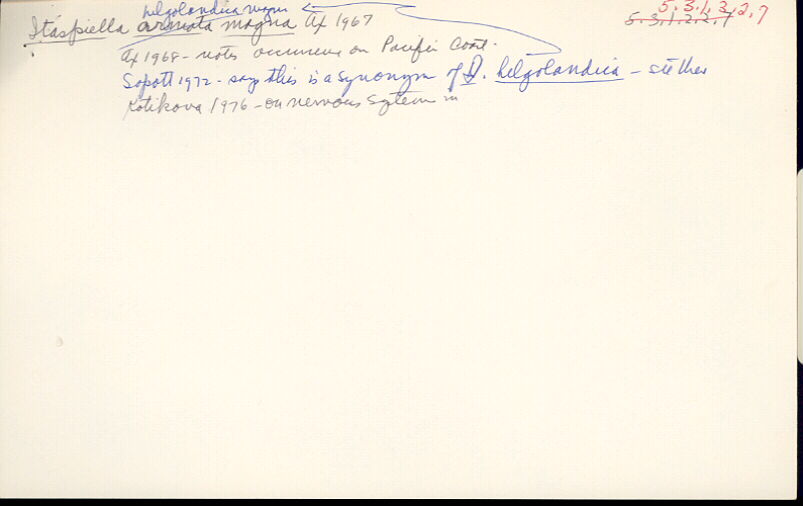 helgolandica magna
5.3.1.3.2.7
Itaspiella armata magna Ax 1967
5.3.1.2.2.7
Ax 1968 - notes occurrence on Pacific Coast.
Sopott 1972 - says this is a synonym of I. helgolandica -
Kotikova 1976 - on nervous system